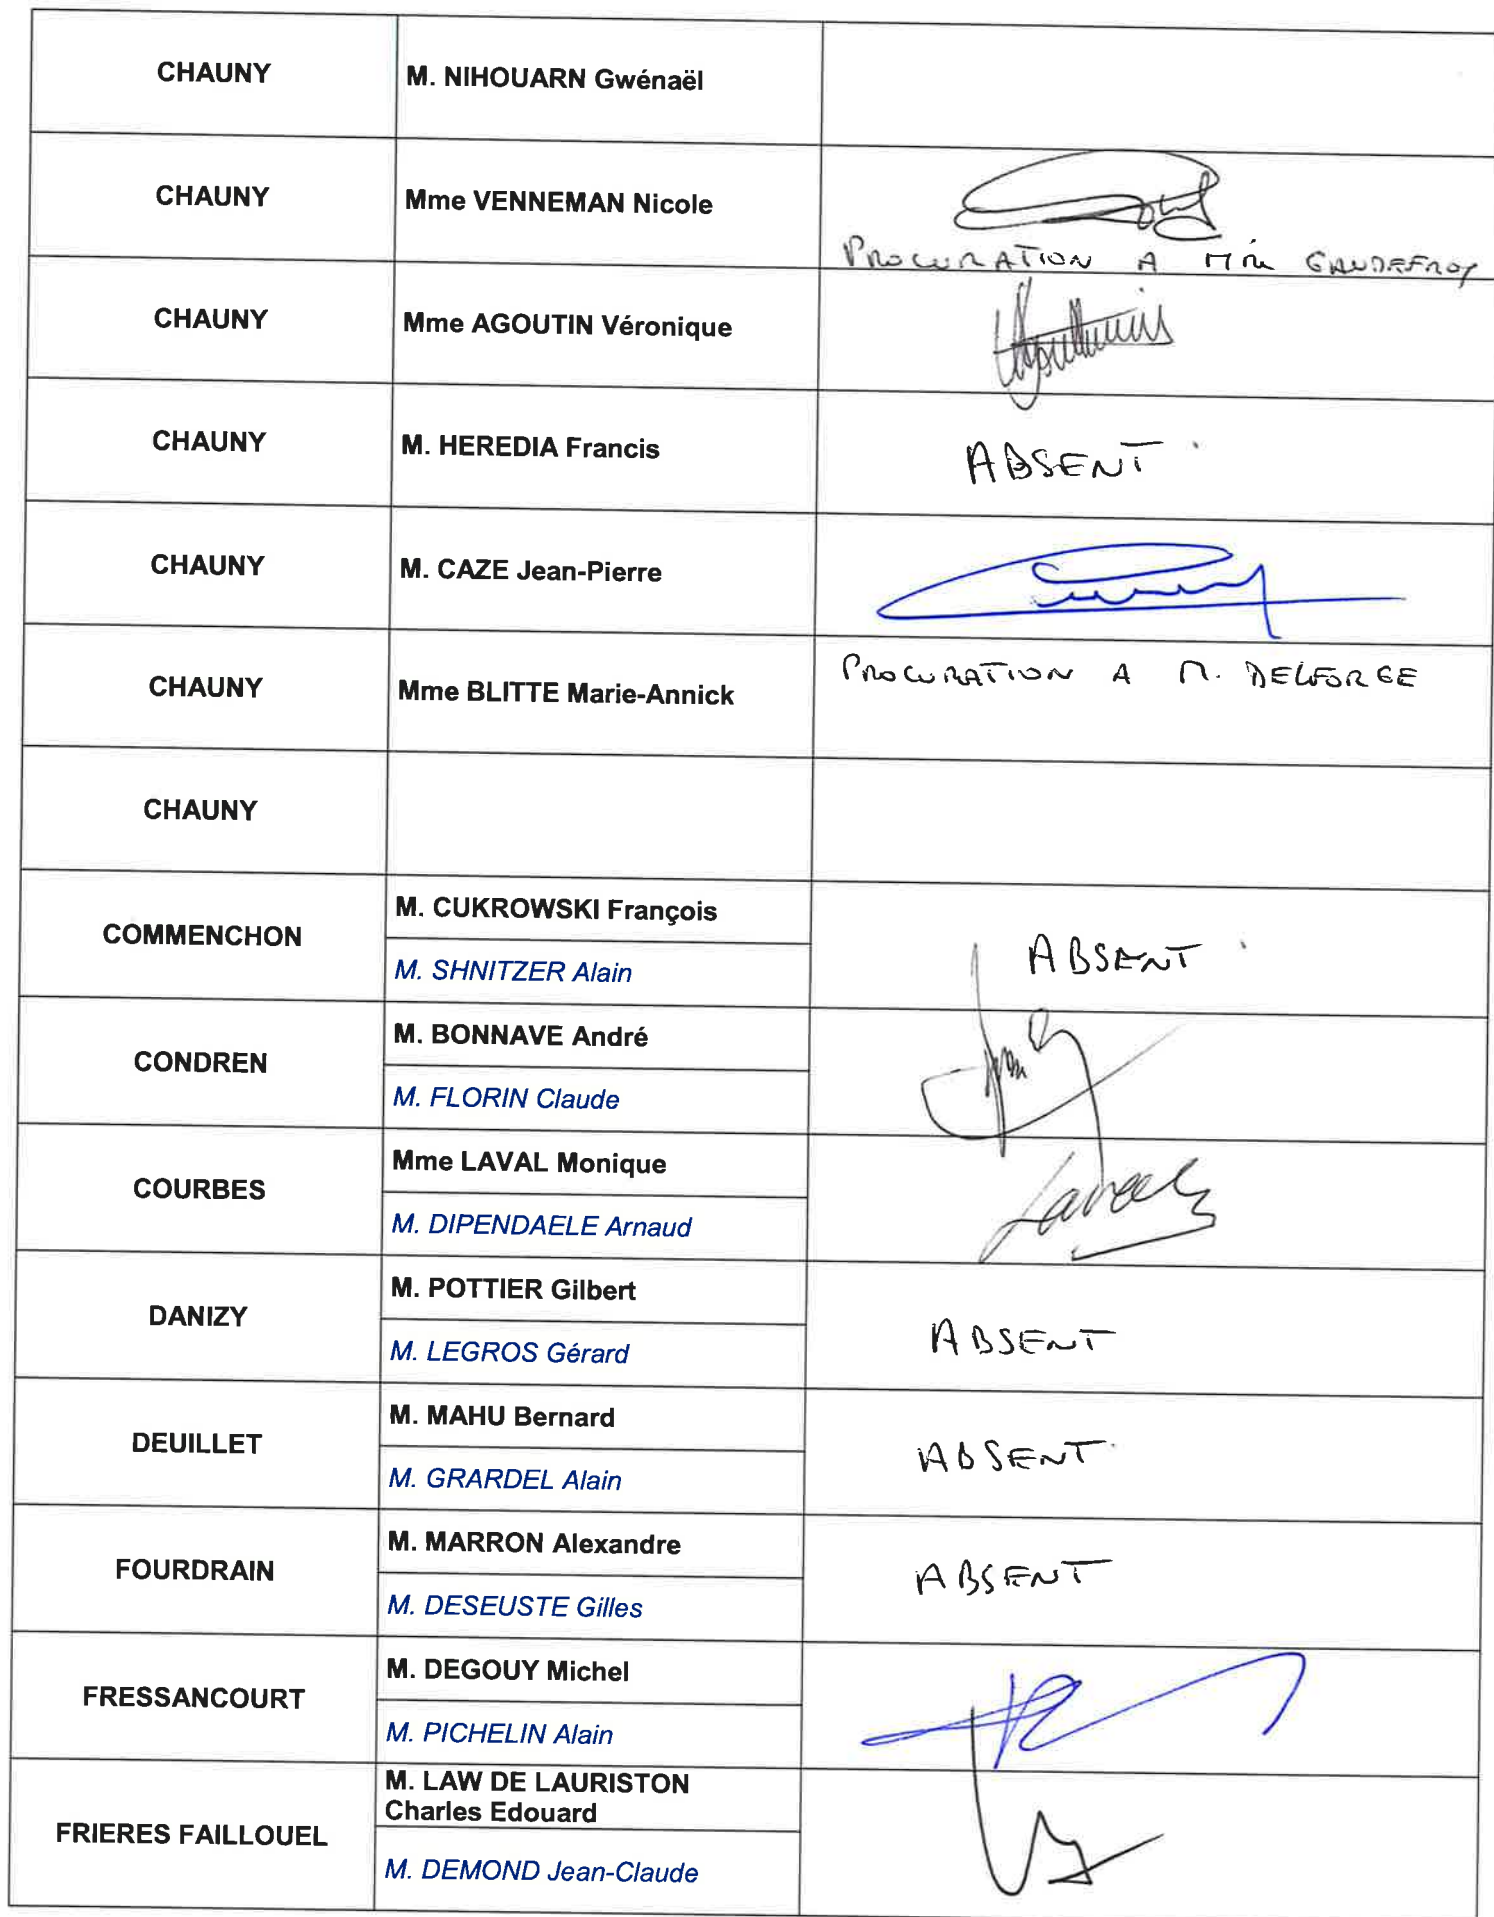 CHAUNY
M. NIHOUARN Gwénaël
CHAUNY
Mme VENNEMAN Nicole
PROCURATION A Mme GAUDEFROY
CHAUNY
Mme AGOUTIN Véronique
CHAUNY
M. HEREDIA Francis
ABSENT
CHAUNY
M. CAZE Jean-Pierre
CHAUNY
Mme BLITTE Marie-Annick
PROCURATION A M. DELFORGE
CHAUNY
COMMENCHON
M. CUKROWSKI François
M. SHNITZER Alain
ABSENT
CONDREN
M. BONNAVE André
M. FLORIN Claude
COURBES
Mme LAVAL Monique
M. DIPENDAELE Arnaud
Laval
DANIZY
M. POTTIER Gilbert
M. LEGROS Gérard
ABSENT
DEUILLET
M. MAHU Bernard
M. GRARDEL Alain
ABSENT
FOURDRAIN
M. MARRON Alexandre
M. DESEUSTE Gilles
ABSENT
FRESSANCOURT
M. DEGOUY Michel
M. PICHELIN Alain
FRIERES FAILLOUEL
M. LAW DE LAURISTON
Charles Edouard
M. DEMOND Jean-Claude